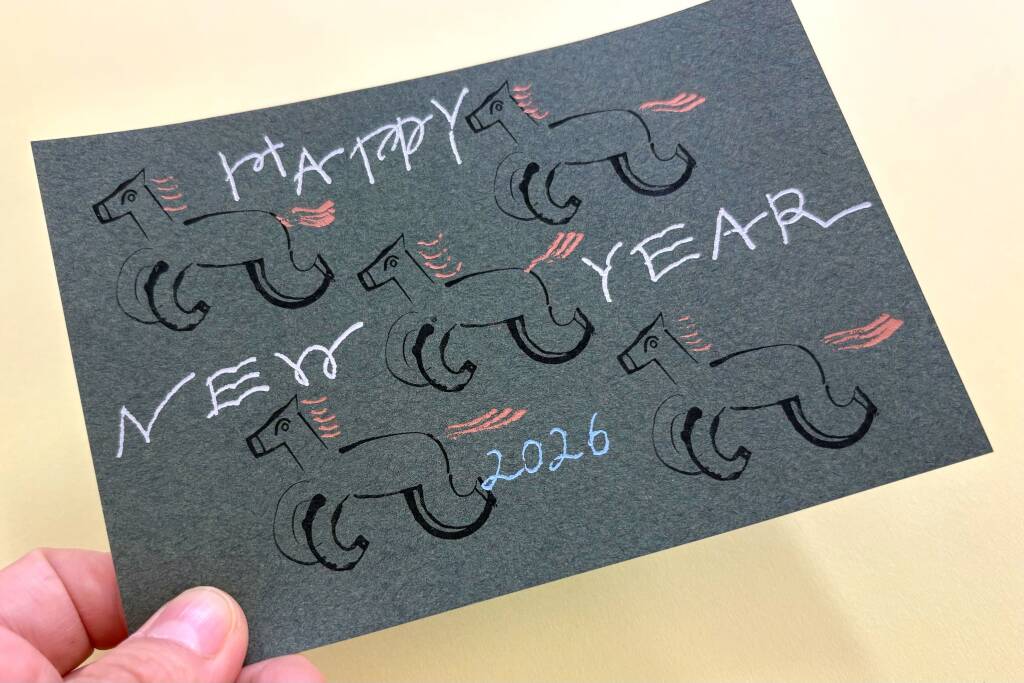 HAPPY
NEW YEAR
2026